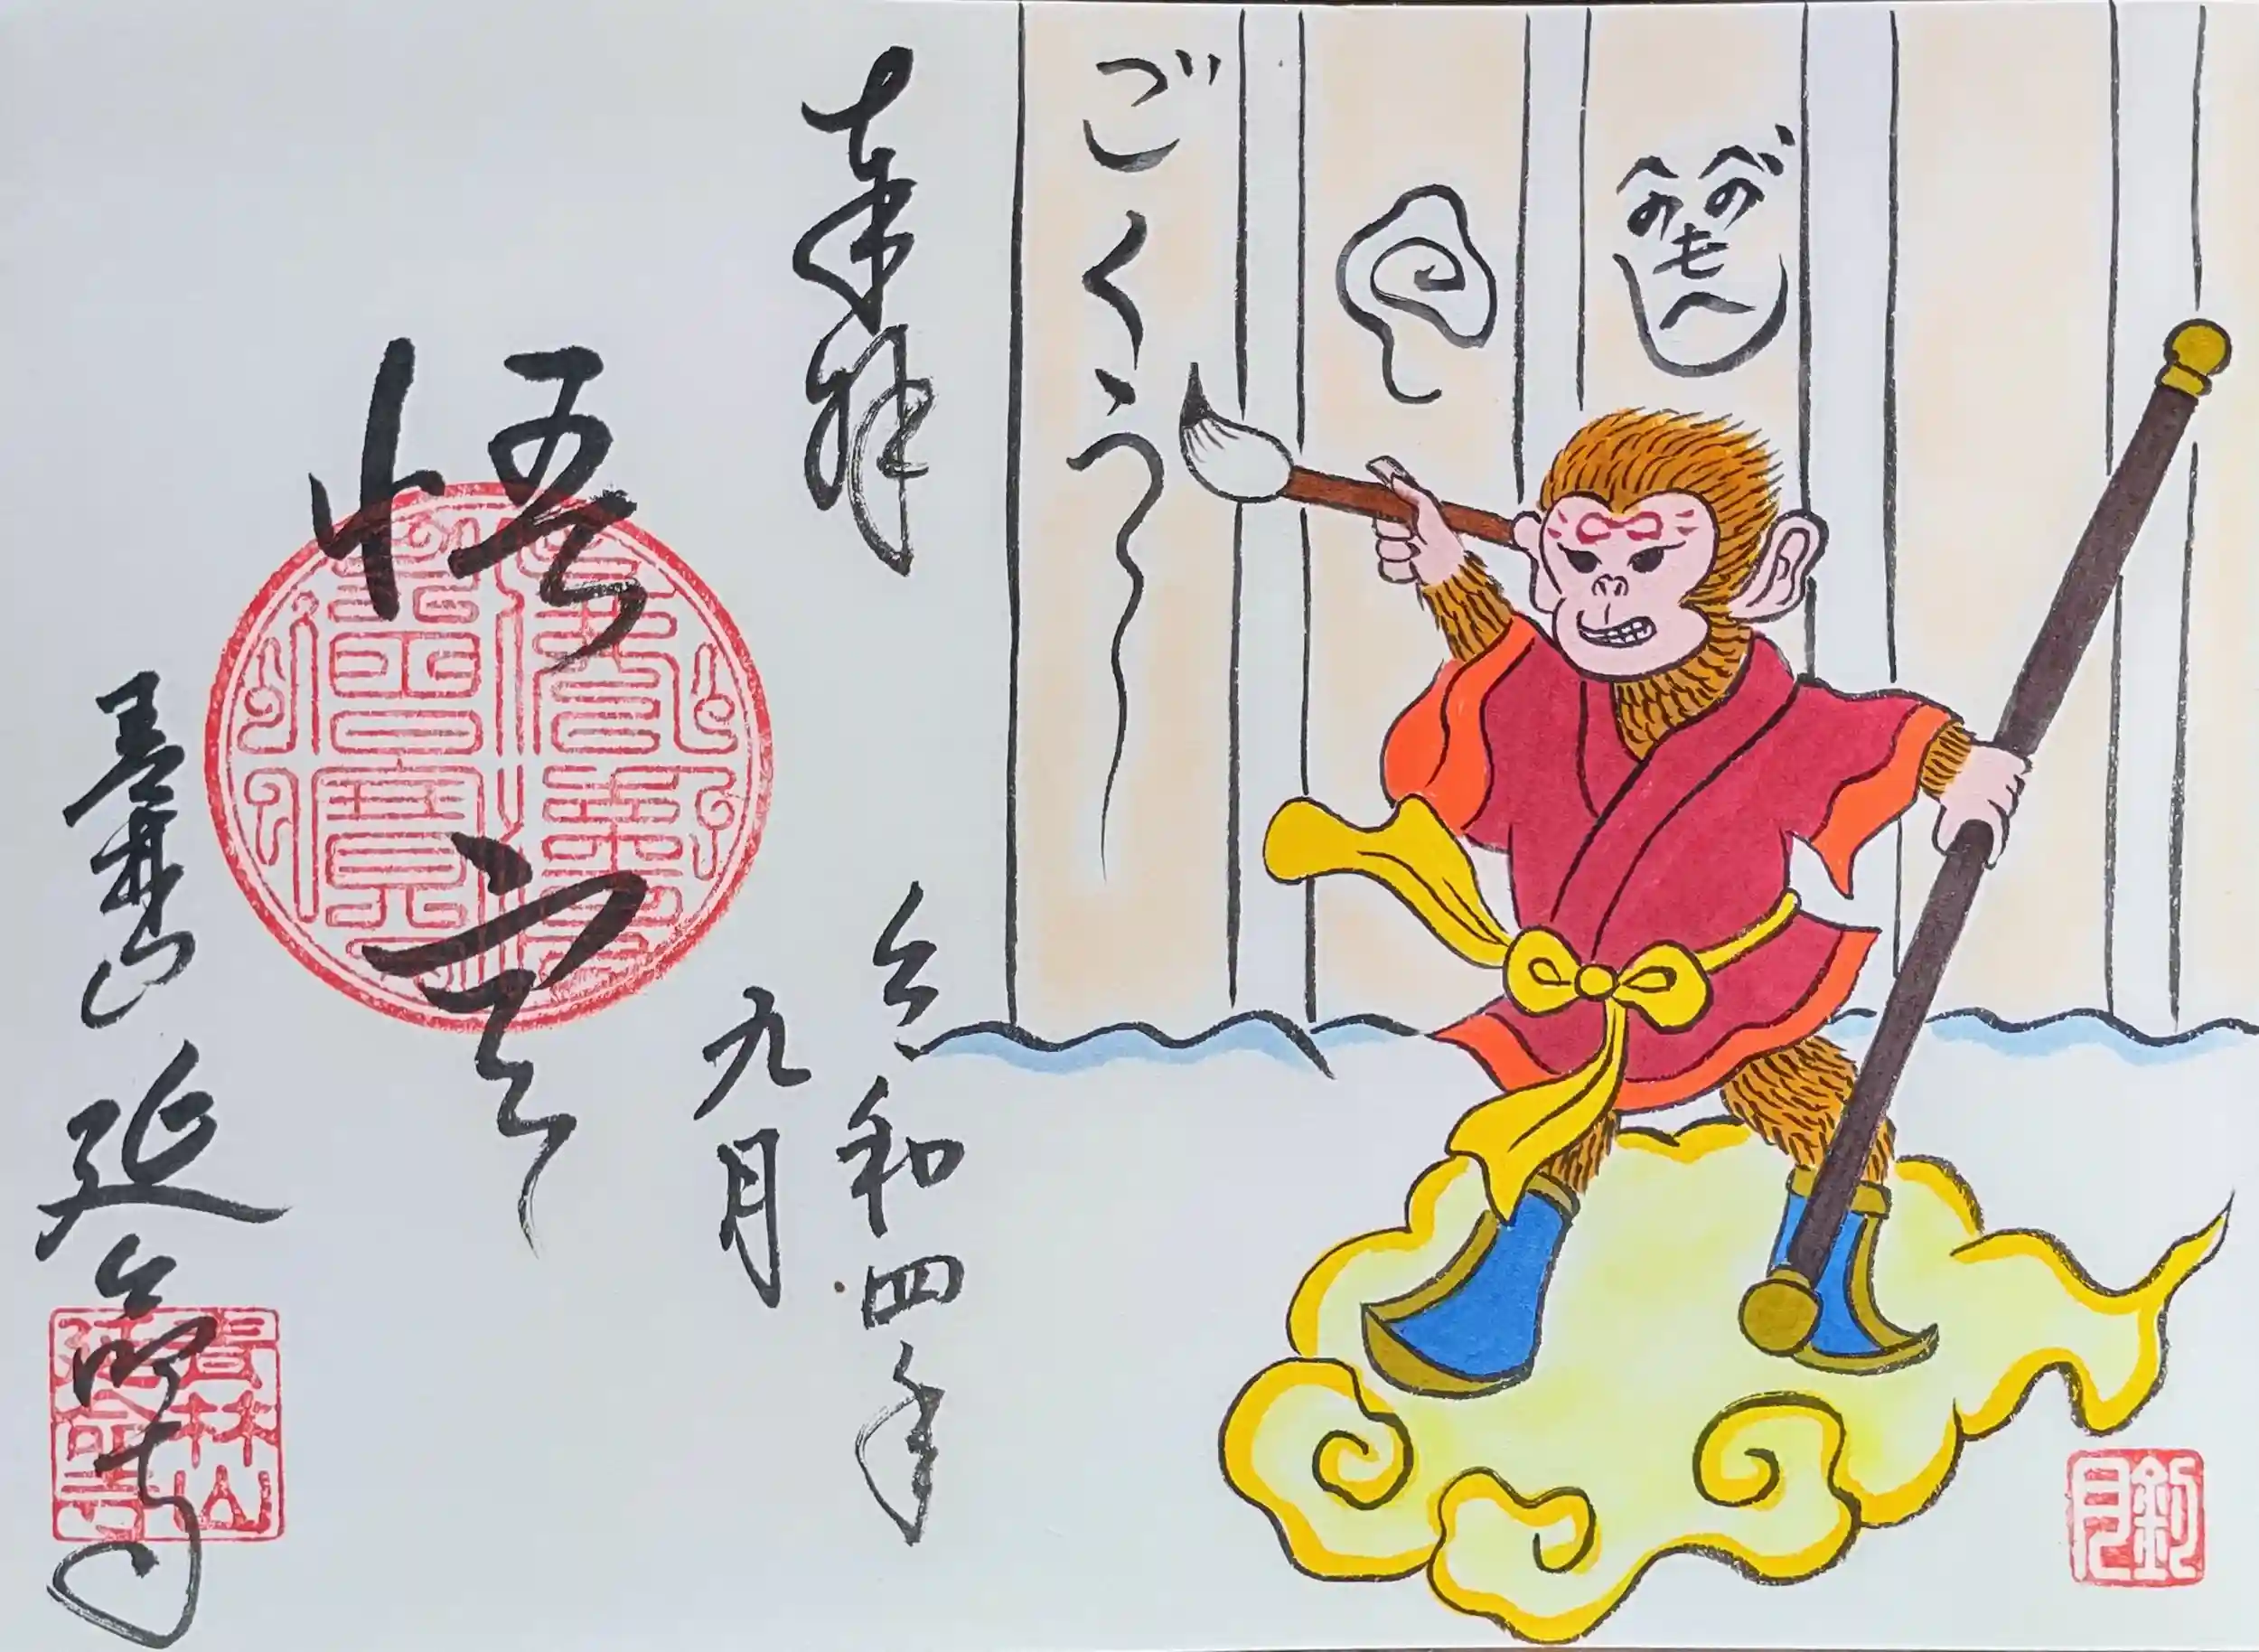 へのへのもへじ
ごくう
奉拝
令和四年
九月
悟空
延命寺